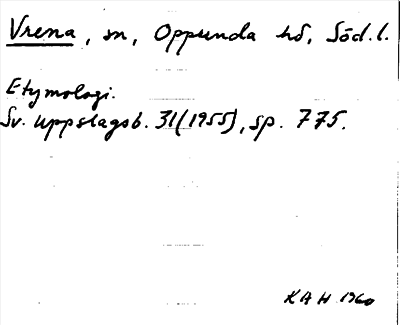 Vrena, sn, Oppunda hd, Söd.l.
Etymologi.
Sv. uppslagsb. 31(1955), sp. 775.
KAH 1960